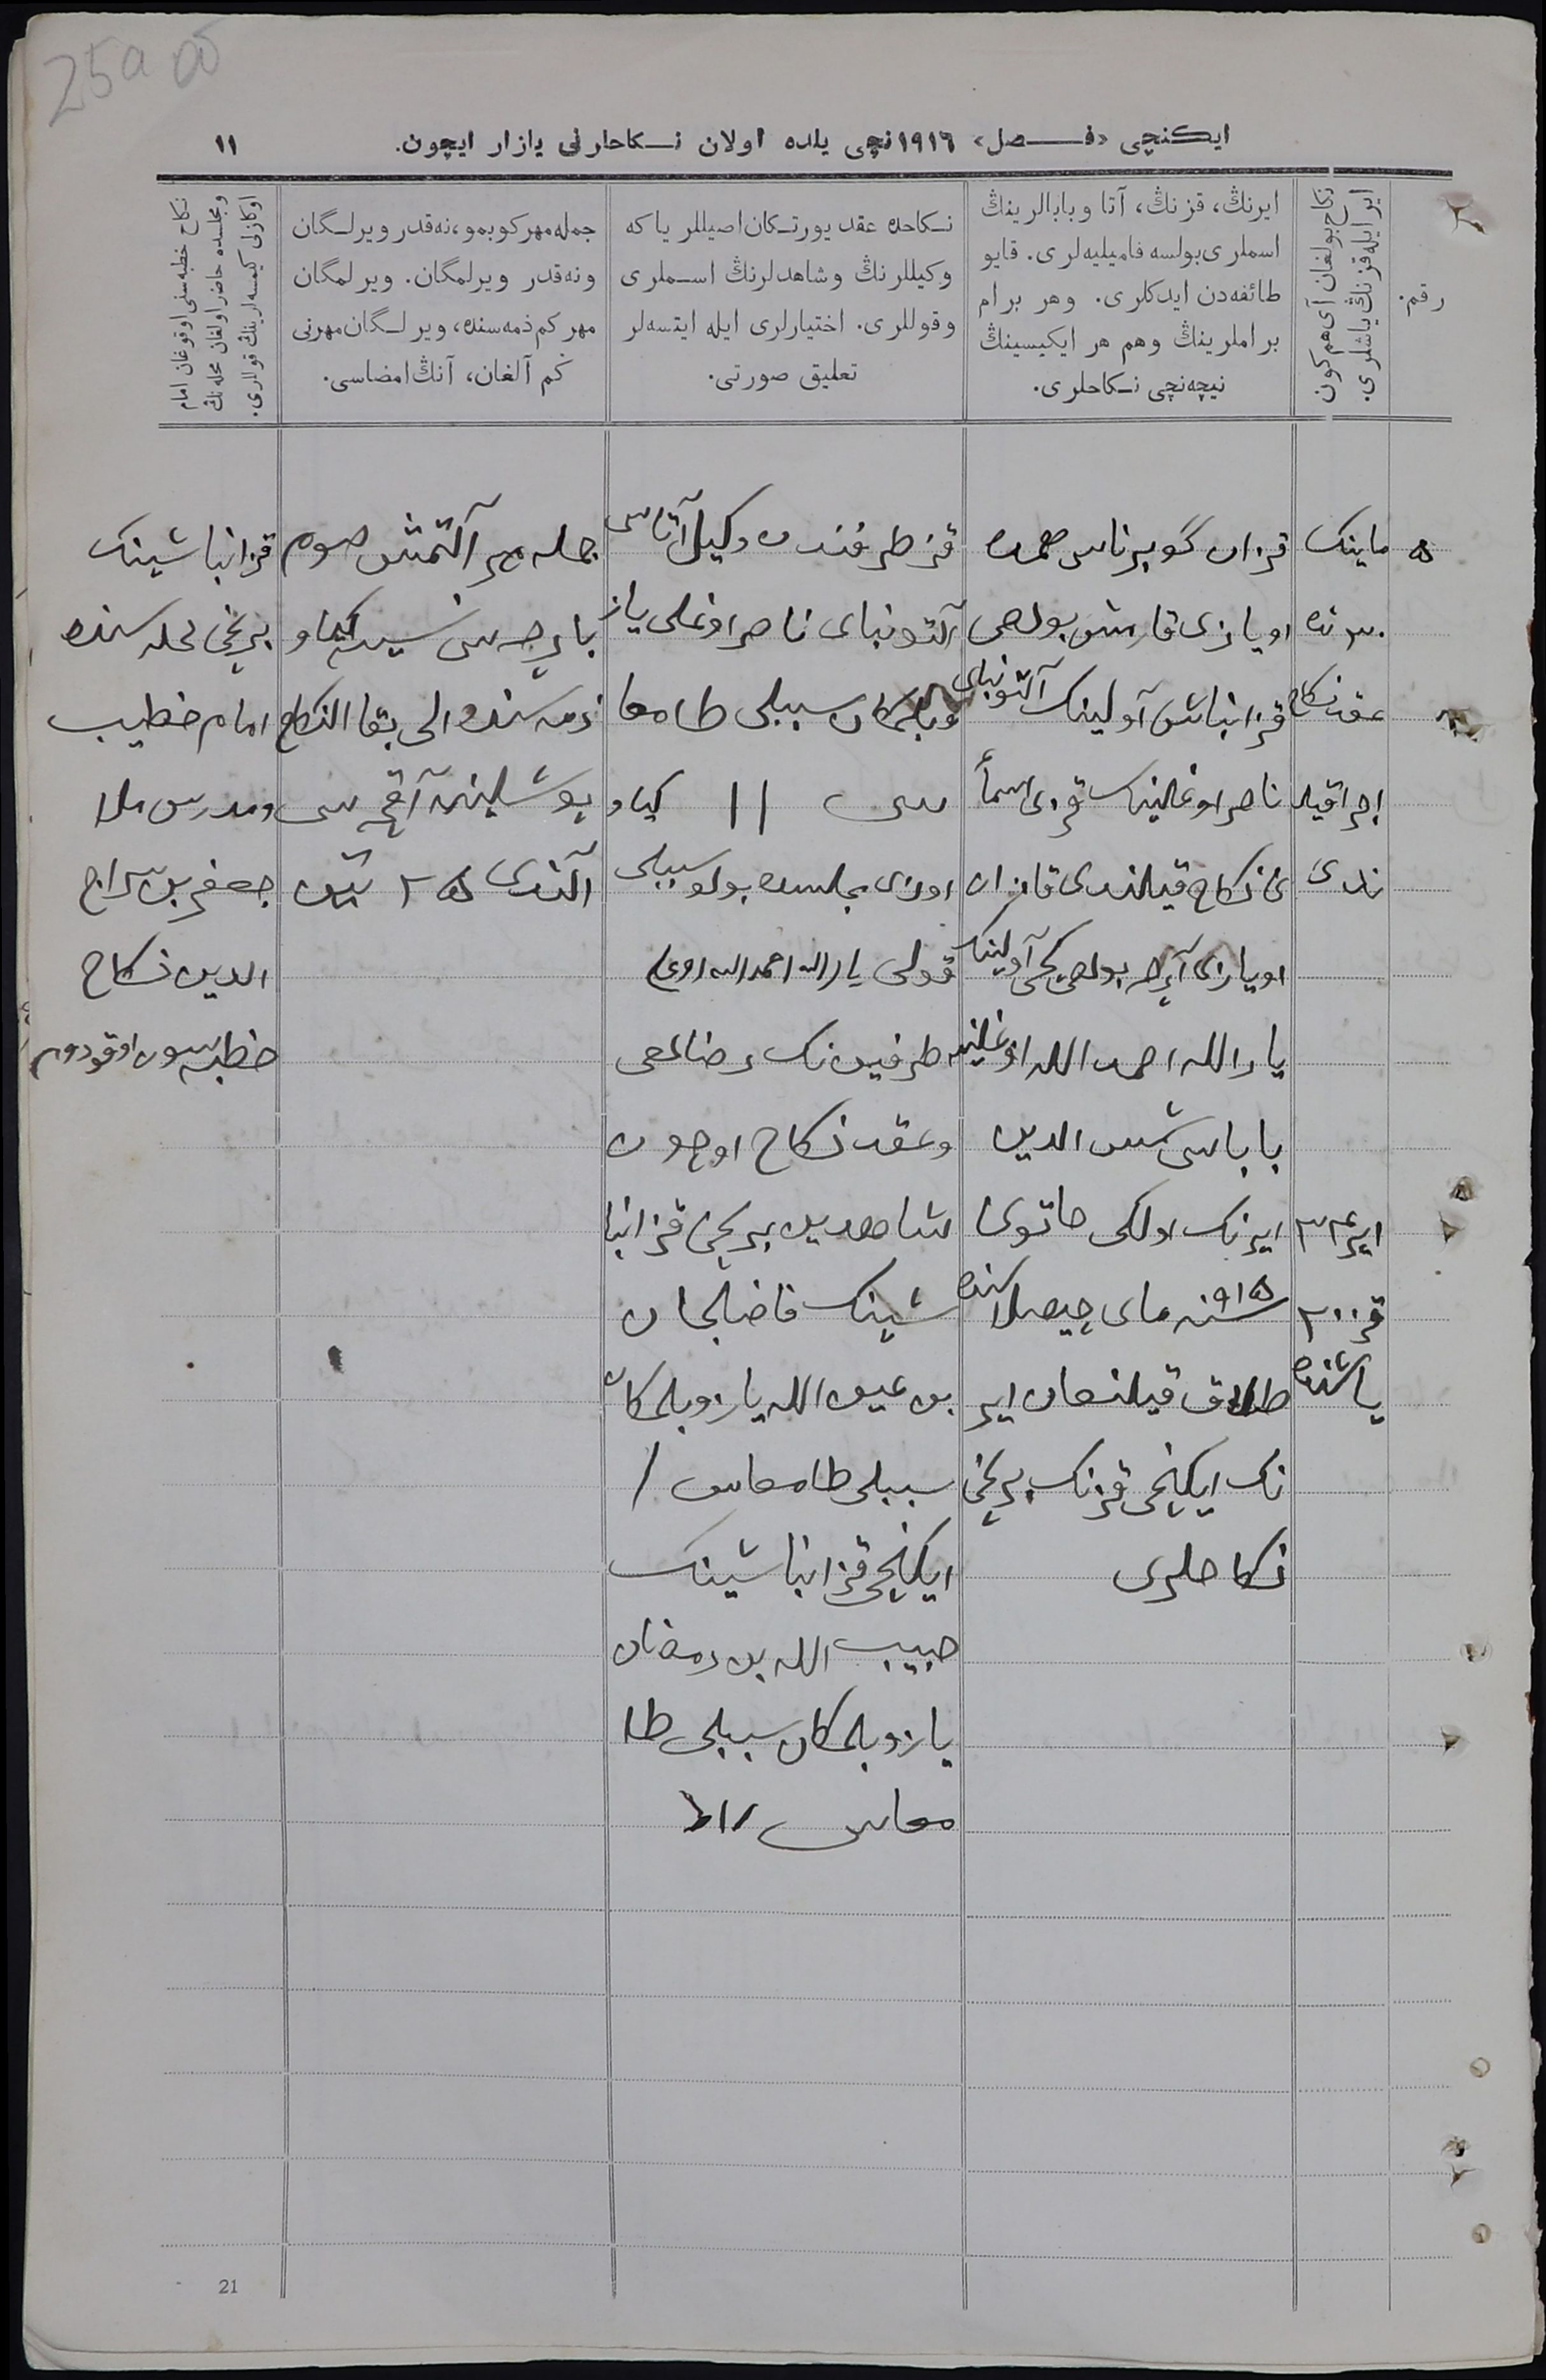 25а
ایکنچی «فـصل» ۱۹۱٦نچی یلده اولان نـکاحارنی یازار ایچون.
۱۱
رقم.
نکاح بولغان آی هم کون
ایر ایله قزنڭ یاشلری.
ایرنڭ، قزنڭ، آتا وبابالرینڭ
اسملری بولسه فامیلیه‌لری. قایو
طائفه‌دن ایدکلری. وهر برام
براملرینڭ وهم هر ایکیسینڭ
نیچه‌نچی نـکاحلری.
نـکاحده عقد یورتـکان اصیللر یا که
وکیللرنڭ وشاهدلرنڭ اسـملری
وقوللری. اختیارلری ایله ایتسه‌لر
تعلیق صورتی.
جمله مهر کوبمو، نه‌قدر ویرلـگان
ونه‌قدر ویرلمگان. ویرلمگان
مهر کم ذمه‌سنده، ویرلـگان مهرنی
کم آلغان، آنڭ امضاسی.
نکاح خطبه‌سنی اوقوغان امام
ومجلسده حاضر اولغان محله‌نڭ
اوکازلی کیمسه‌لرینڭ قوللری.
۵
ماینک
۳۰ نده
عقد نکاح
اجرا قیلا
ندی
ایر ۳۴
قز ۲۰
یاشنده
قزان گوبرناسی
اویازی قارمش بولصی
قزانباش آولینک آلتونبای
ناصر اوغلینک قزی اسما
نی نکاح قیلندی قازان
اویازی بولصی آولینک
یارالله احمدالله اوغلینه
باباسی شمس الدین
ایرنک اولکی خاتونی
۱۹۱۵ سنه مای چیصلاسنده
طلاق قیلنغان ایر
نک ایکنچی قزنک برنچی
نکاحلری
قز طرفندن وکیل آتاسی
آلتونبای ناصر اوغلی یاز
وبلمکان سببلی طامغا
سی || کیاو
اوزی مجلسده بولو سببلی
قولی یارالله احمدالله اوغلی
طرفین نک رضالغی
وعقد نکاح اوچون
شاهدین برنچی قزانبا
شینک فاضلجان
بن عین الله یازو بلمکان
سببلی طامغاسی /
ایکنچی قزانباشینک
حبیب الله بن رمضان
یازو بلمکان سببلی طا
مغاسی
جمله مهر آلتمش صوم
بارچه سی کیاو
ذمه سنده الی بقا النکاح
بوشلینه آقچه سی
آلندی ۲۵ تین
قزانباشینک
برنچی محله سنده
امام خطیب
ومدرس ملا
جعفر بن سراج
الدین نکاح
خطبه سون اوقودوم
21